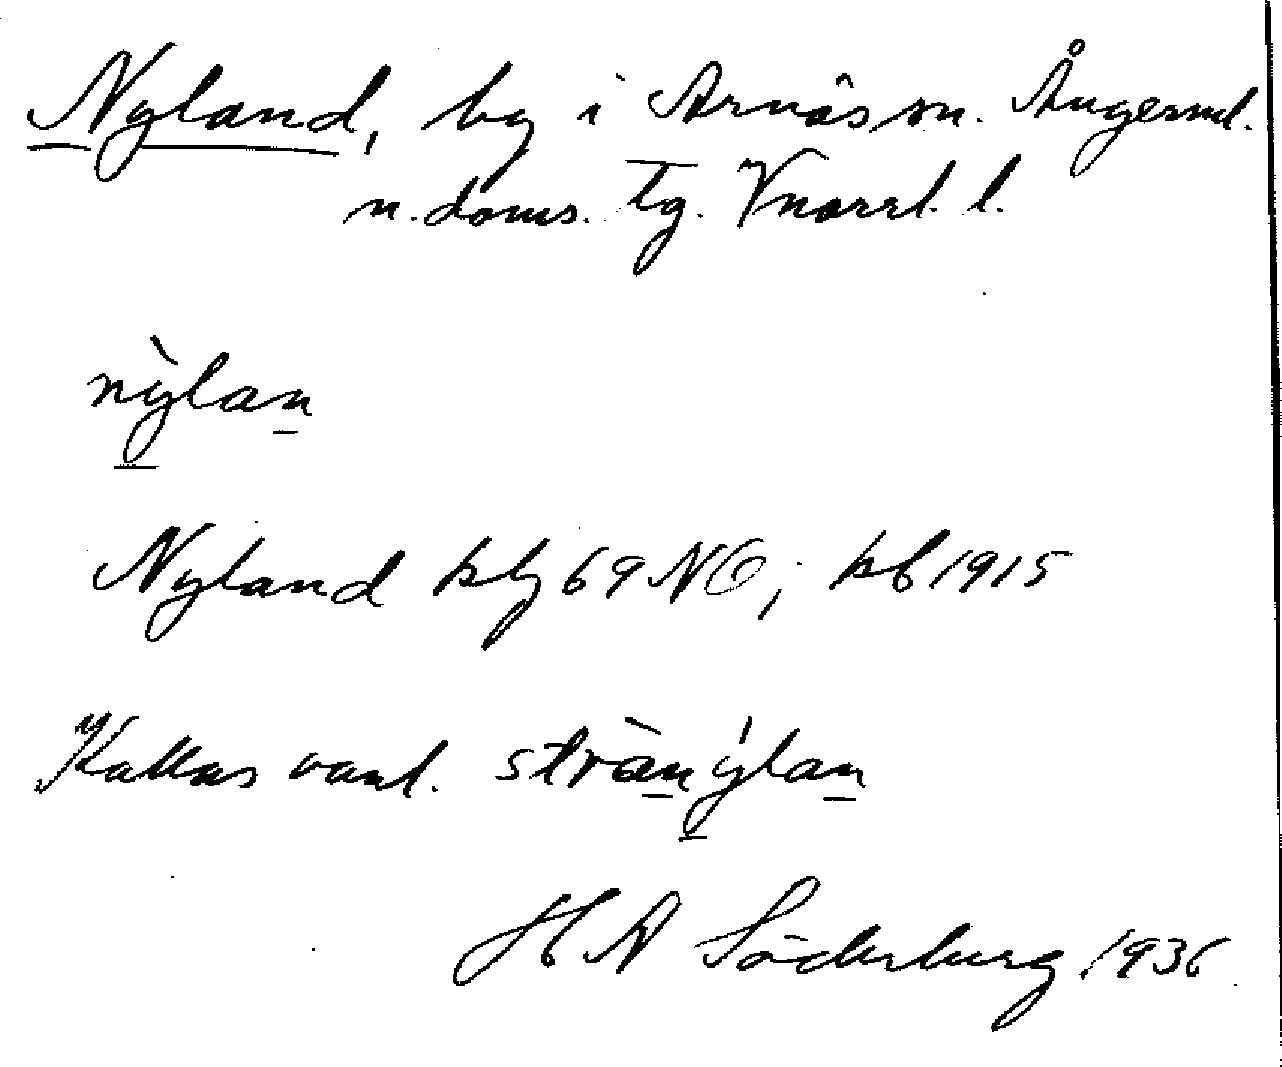 Nyland, by i Arnäs sn. Ångerml.
n. doms. tg. Vnorrl. l.
nỳlan
Nyland kbj 69 NO; kb 1915
Kallas vanl. strànýlan
H A Söderberg 1936